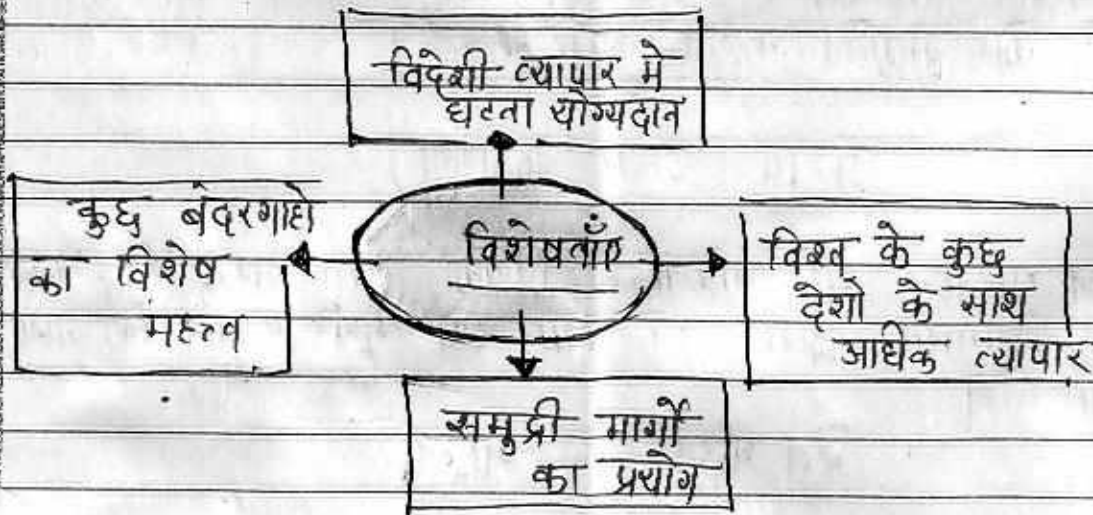 विदेशी व्यापार मे
घटता योग्यदान
कुछ बंदरगाहो
का विशेष
महत्त्व
विशेषताँए
विश्व के कुछ
देशो के साथ
आधिक व्यापार
समुद्री मार्गों
का प्रयोग